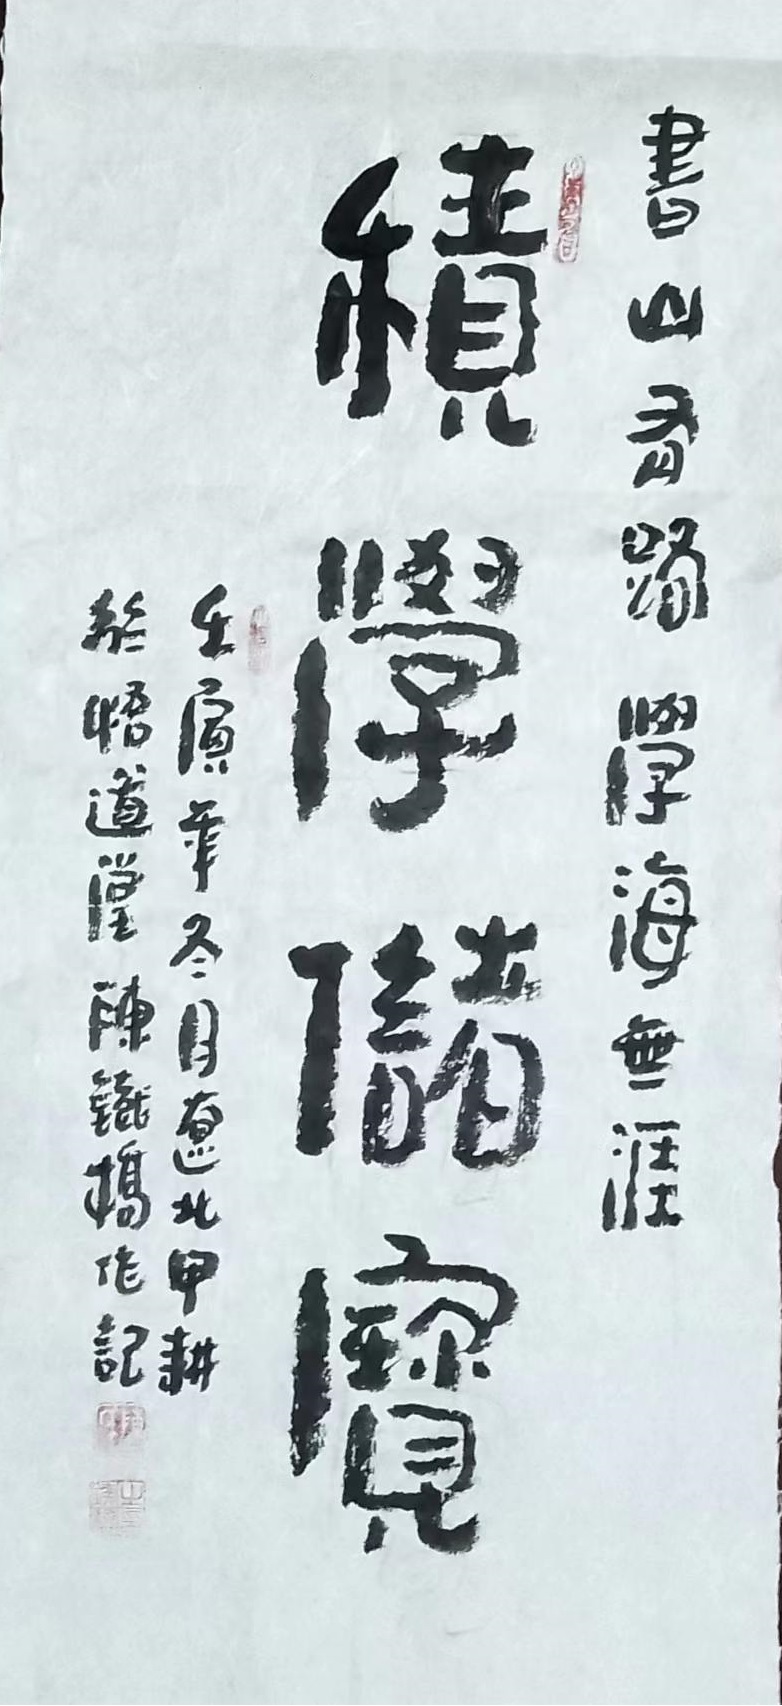 書山有路學海無涯
積學儲寶
壬寅年冬月遼北甲耕
於悟道堂陳鐵橋作記